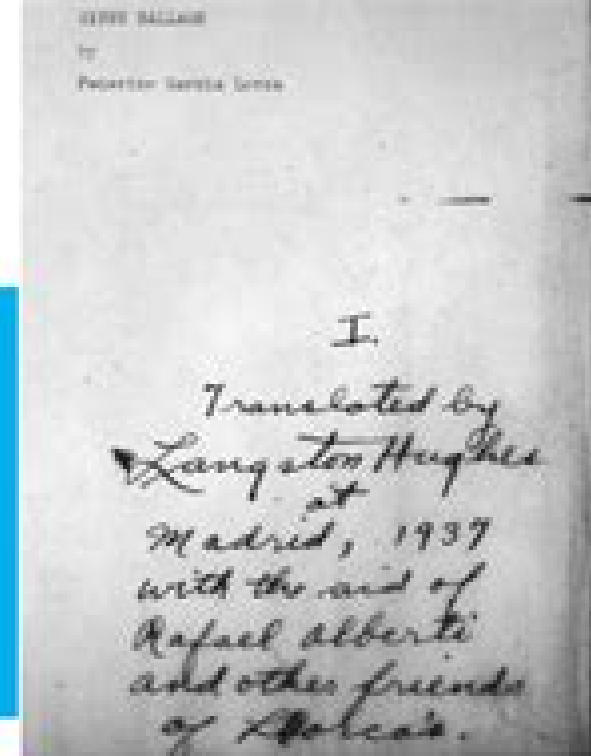 GIPSY BALLADS
by
Federico Garcia Lorca
I.
Translated by
Langston Hughes
at
Madrid, 1937
with the aid of
Rafael Alberti
and other friends
of Lorca's.